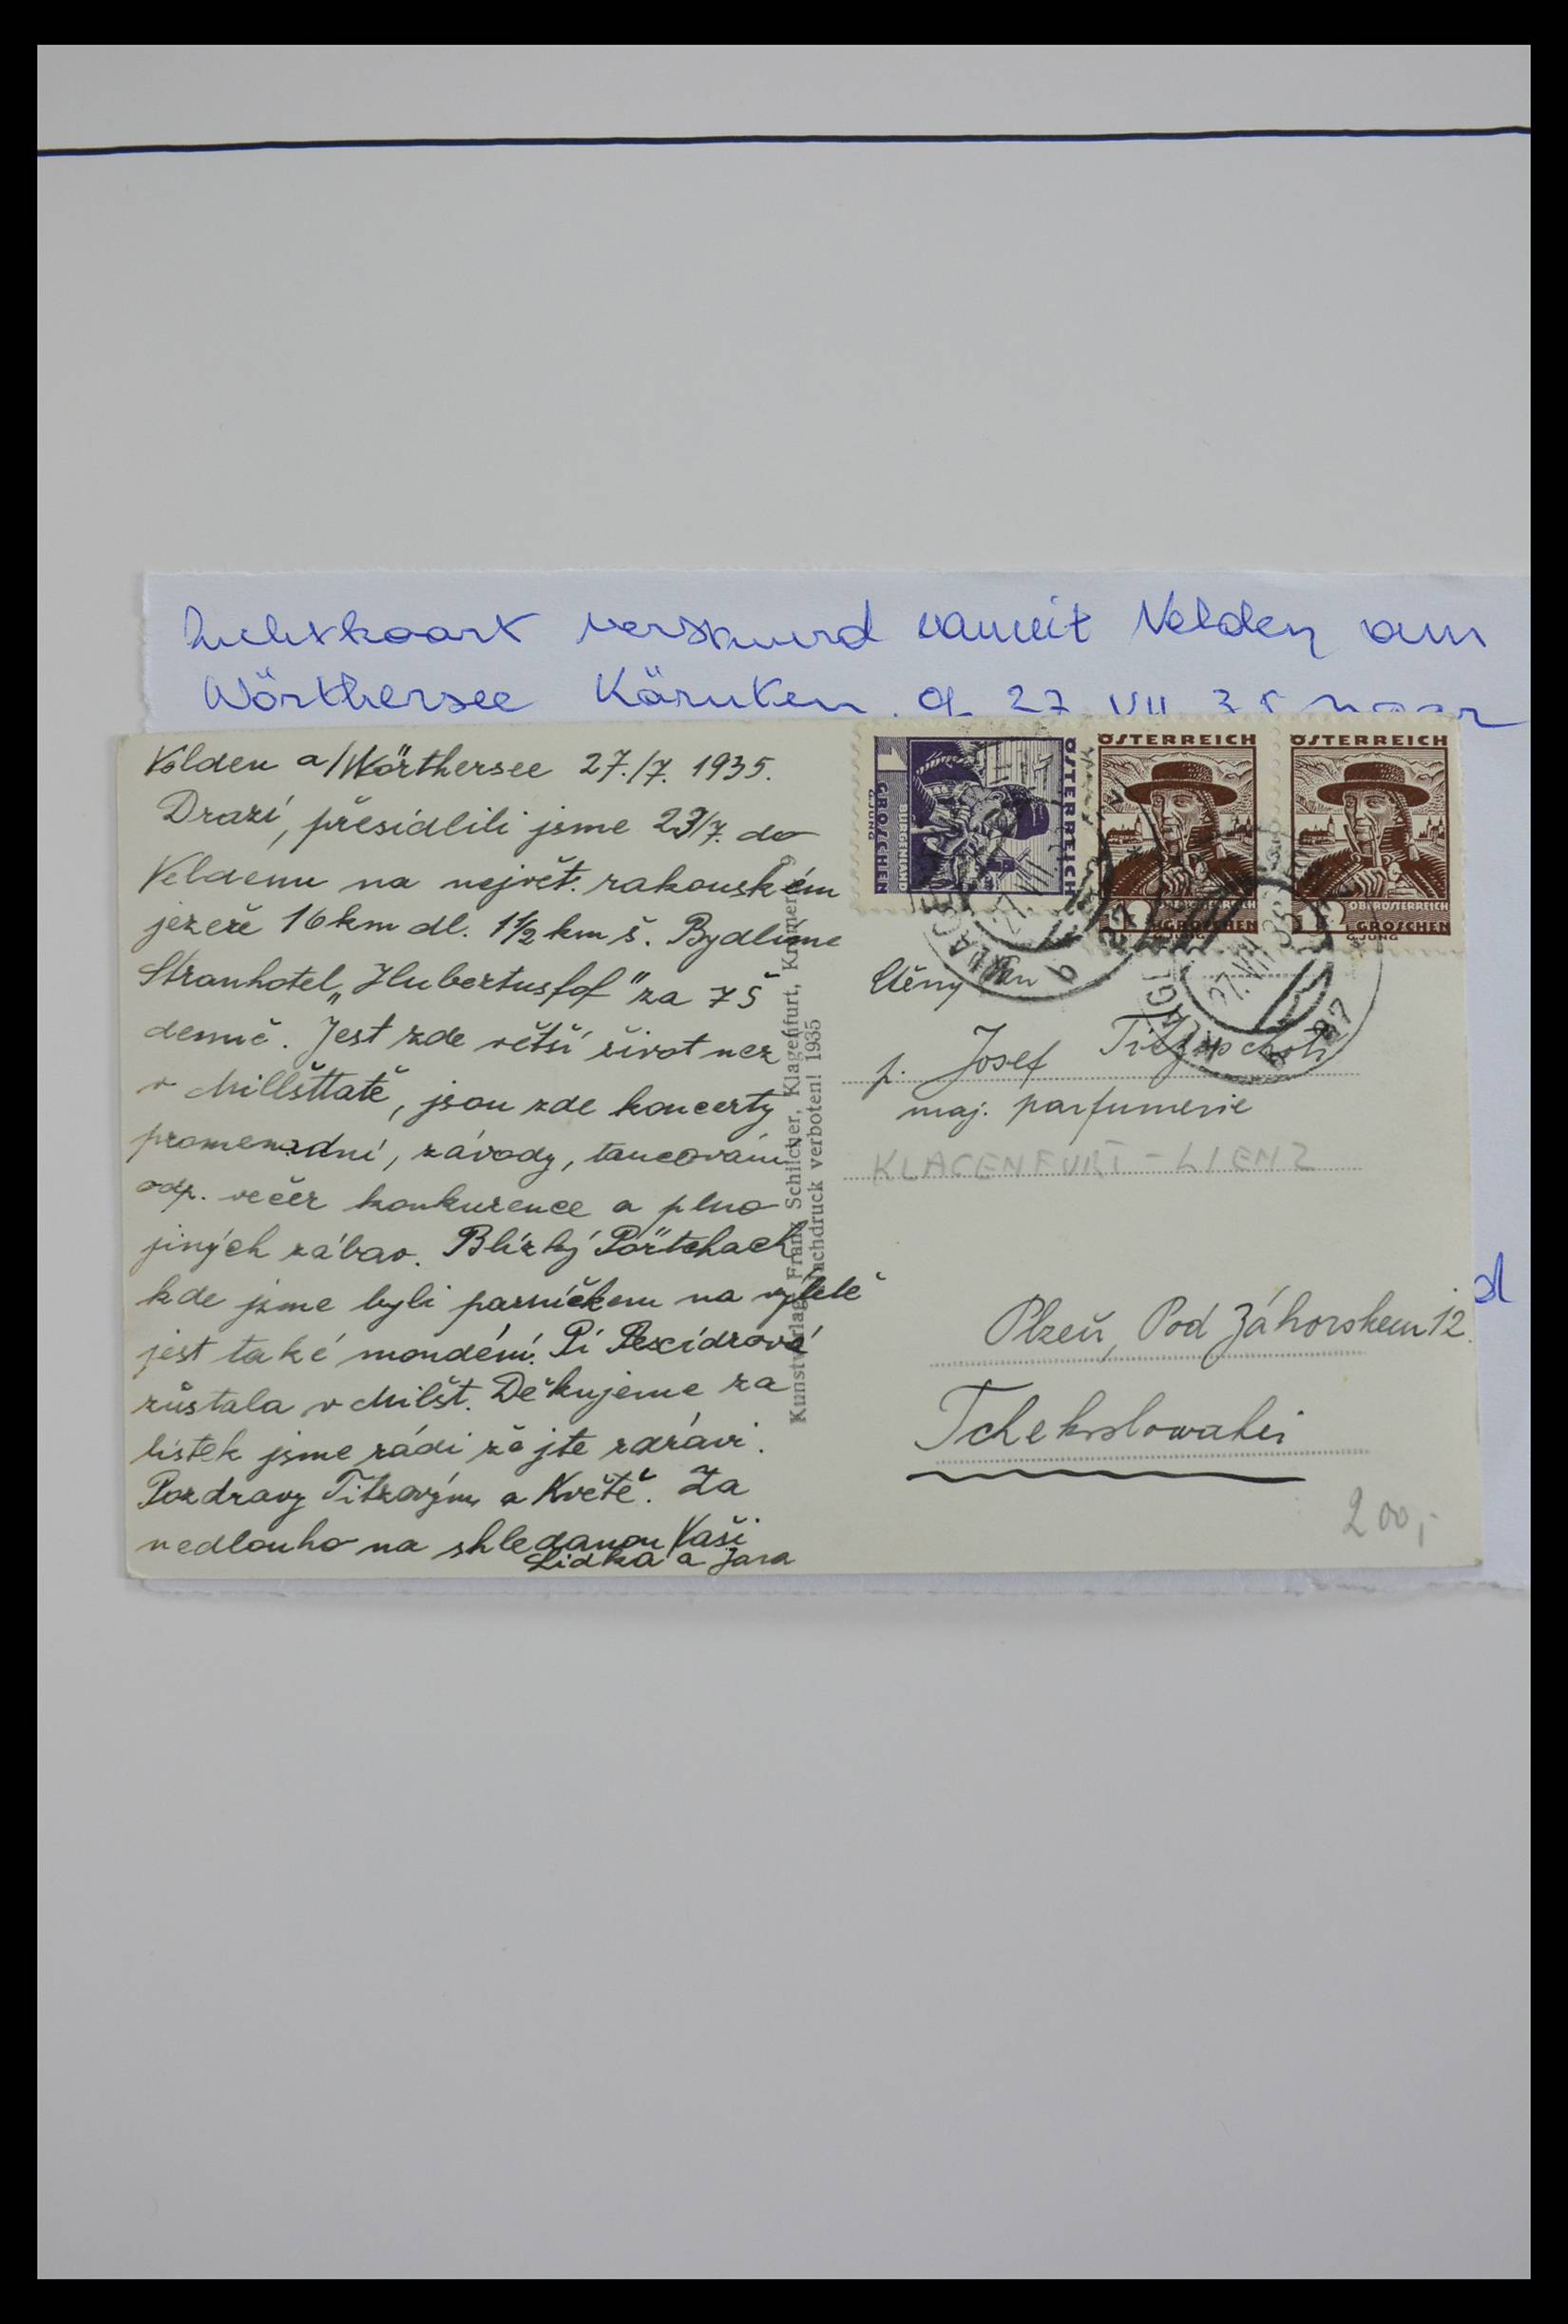 Luchtkaart verstuurd vanuit Velden am
Wörthersee Kärnten. d 27 VII 35 naar
Velden a/Wörthersee 27./7. 1935.
Drazí, přesídlili jsme 23/7. do
Veldenu na největ. rakouském
jezeře 16 km dl. 1½ km š. Bydlíme
Stranhotel „Hubertushof" za 7 Š
denně. Jest zde větší život než
v Millšttatě, jsou zde koncerty
promenadní, závody, tancování
odp. večer konkurence a plno
jiných zábav. Blízký Pörtchach
kde jsme byli parníčkem na výletě
jest také mondéní. Pí
zůstala v Milšt. Děkujeme za
lístek jsme rádi že jte zdrávi.
Pozdravy Titzovým a Květě. Za
nedlouho na shledanou Vaši
Lidka a Jara
Kunstverlag Franz Schilcher, Klagenfurt, 9
Nachdruck verboten! 1935
1
GROSCHEN
BURGENLAND
ÖSTERREICH
G.JUNG
ÖSTERREICH
OBERÖSTERREICH
GROSCHEN
G.JUNG
ÖSTERREICH
12
OBERÖSTERREICH
GROSCHEN
G.JUNG
27.VII.35
Ctěný pan
p. Josef
maj. parfumerie
KLAGENFURT - LIENZ
Plzeň, Pod Záhorskem 12.
Tchekoslowakei
200,-